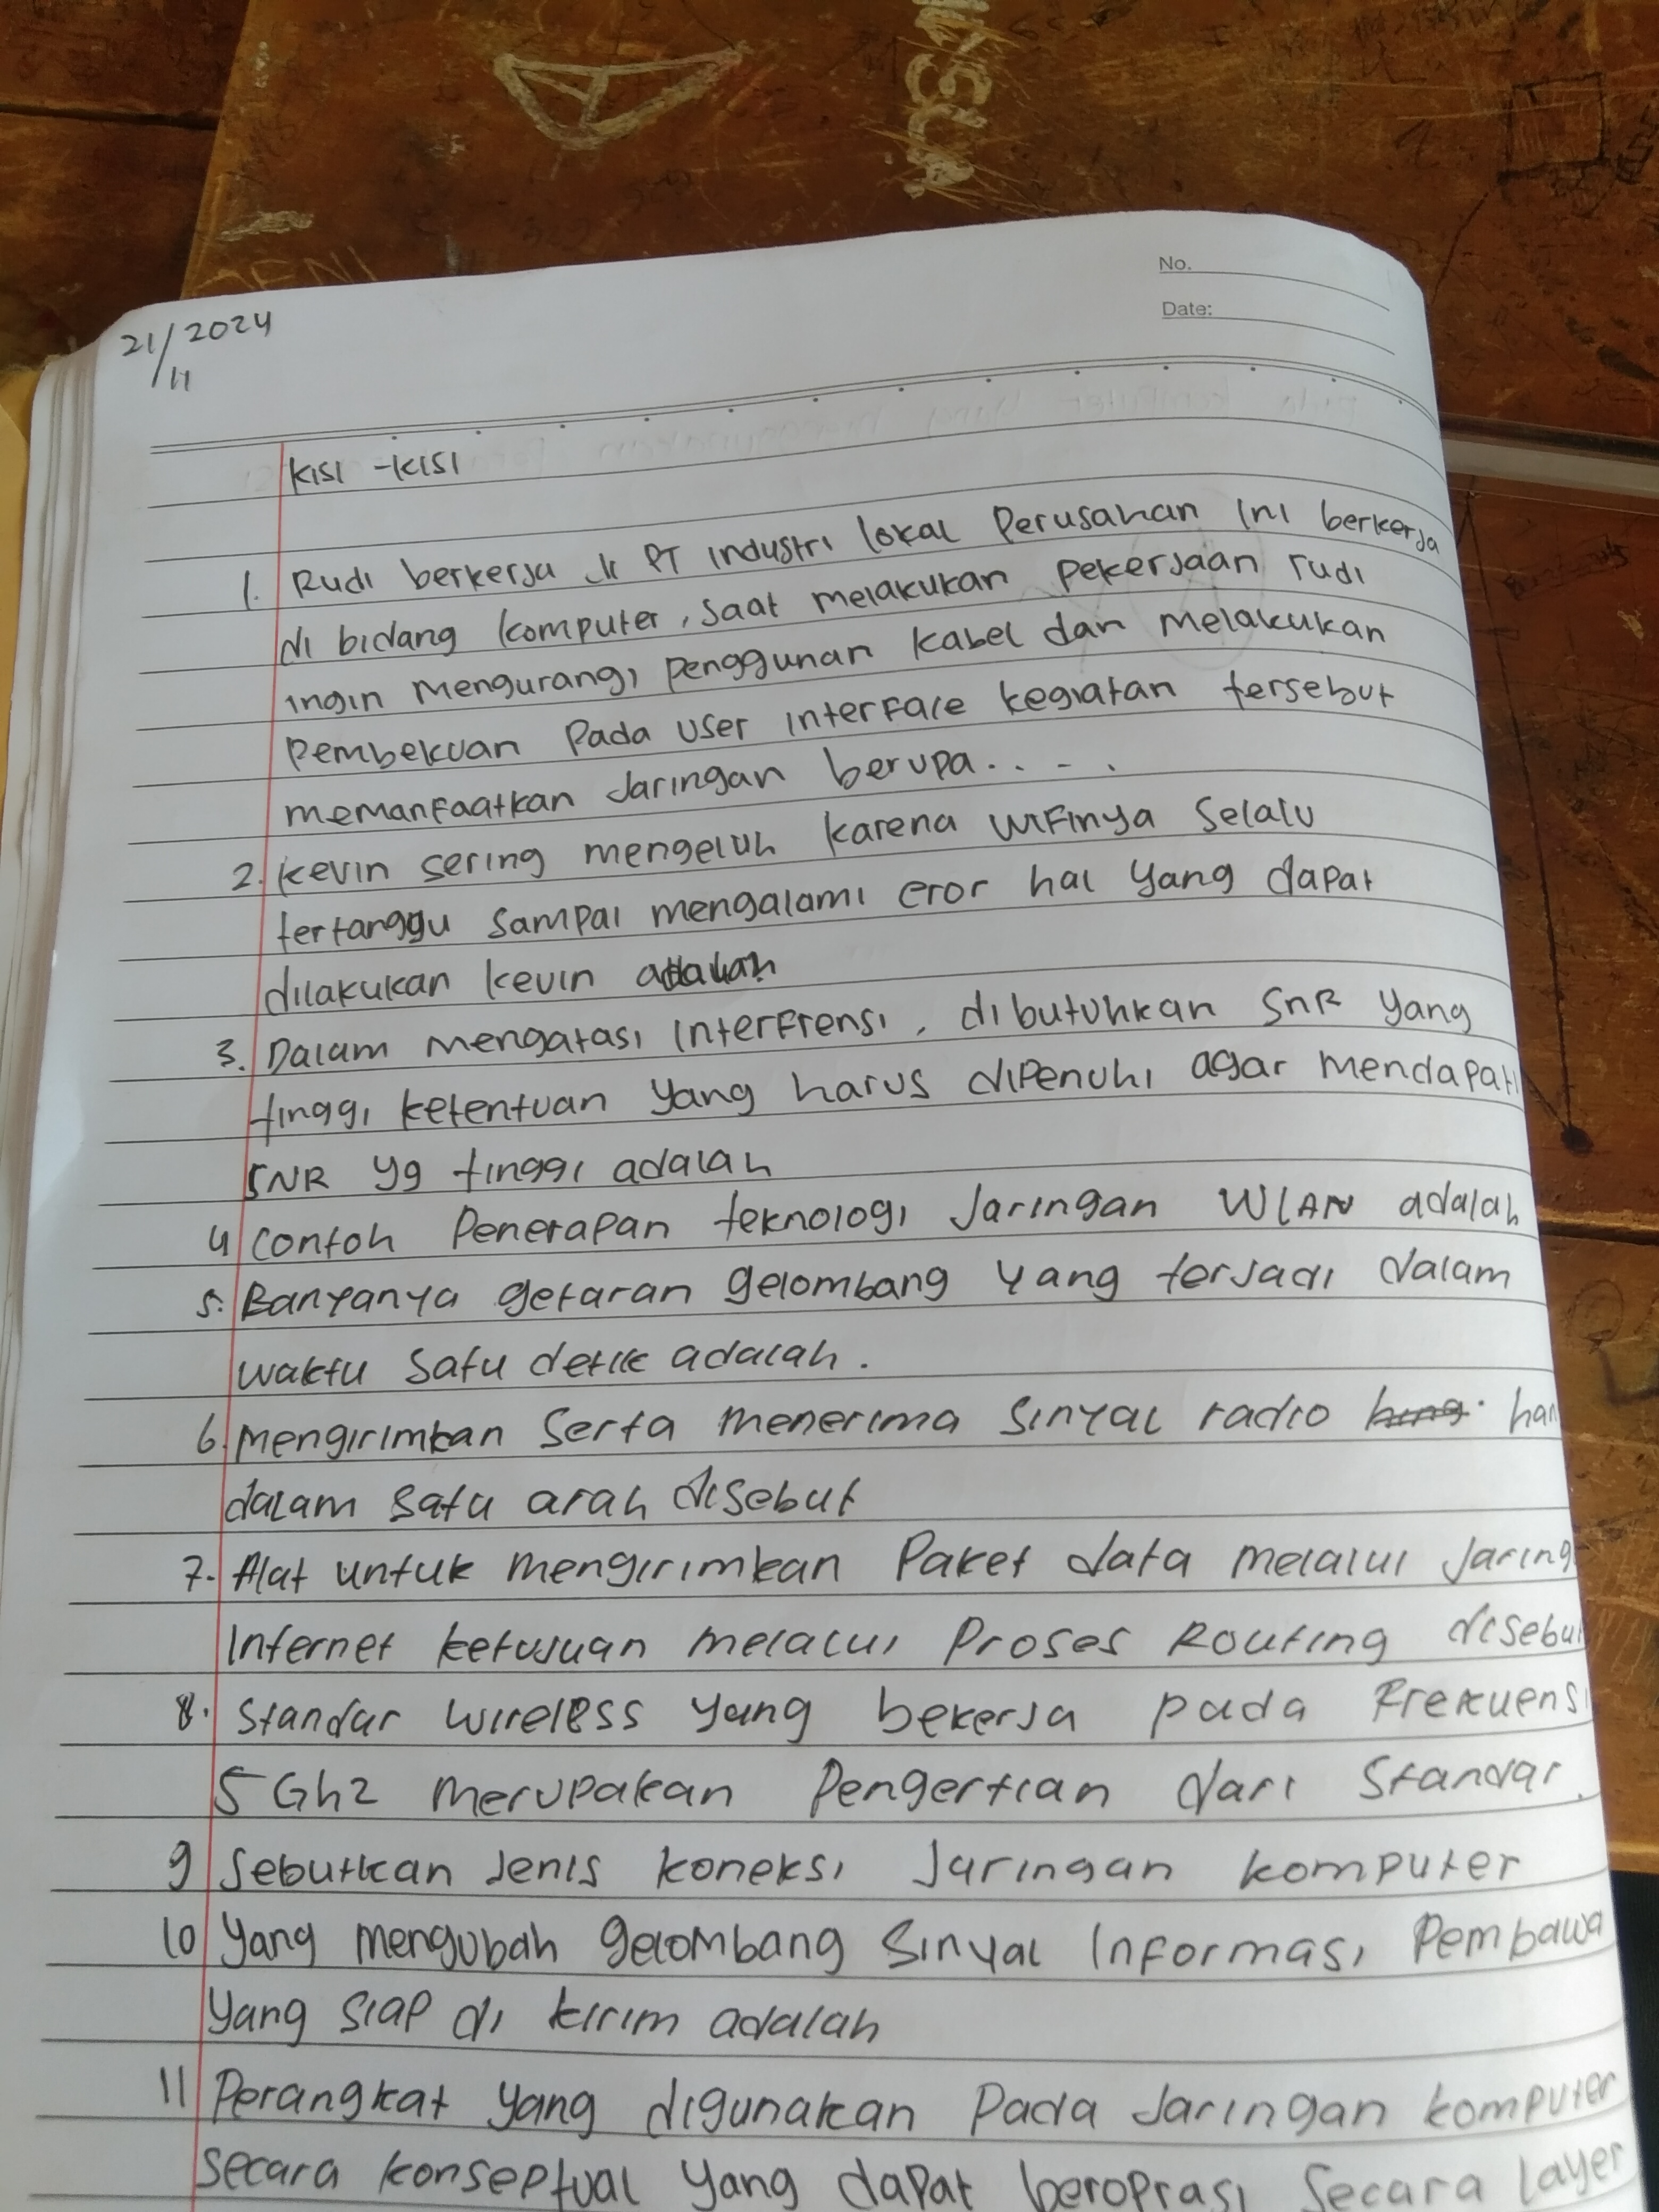 21/11 2024
No.
Date:
KISI-KISI
1. Rudi berkerja di PT industri lokal Perusahan ini berkerja
di bidang komputer, saat melakukan pekerjaan rudi
ingin mengurangi penggunan kabel dan melakukan
pembekuan pada user interface kegiatan tersebut
memanfaatkan Jaringan berupa.. - .
2. Kevin sering mengeluh karena wifinya selalu
tertanggu sampai mengalami eror hal yang dapat
dilakukan kevin adalah
3. Dalam mengatasi interfrensi, dibutuhkan SnR yang
tinggi ketentuan yang harus dipenuhi agar mendapati
SNR yg tinggi adalah
4 Contoh Penerapan teknologi Jaringan WLAN adalah
5. Banyanya getaran gelombang yang terjadi dalam
waktu satu detik adalah.
6. Mengirimkan serta menerima sinyal radio han
dalam satu arah disebut
7. Alat untuk mengirimkan Paket data melalui Jaring
Internet ketujuan melalui Proses Routing disebu
8. Standar wireless yang bekerja pada Frekuensi
5 Ghz merupakan Pengertian dari Standar.
9 Sebutkan Jenis koneksi Jaringan komputer
10 Yang mengubah gelombang sinyal Informasi Pembawa
yang siap di kirim adalah
11 Perangkat yang digunakan Pada Jaringan komputer
secara konseptual yang dapat beroprasi secara layer